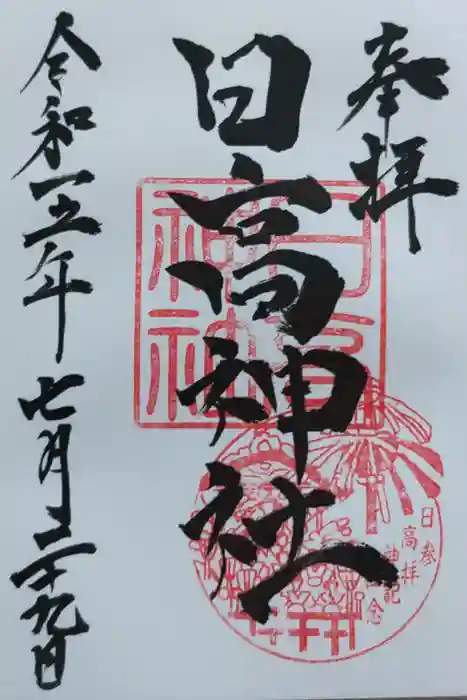 奉拝
日高神社
令和五年七月二十九日
日高神社
参拝記念
日高神社